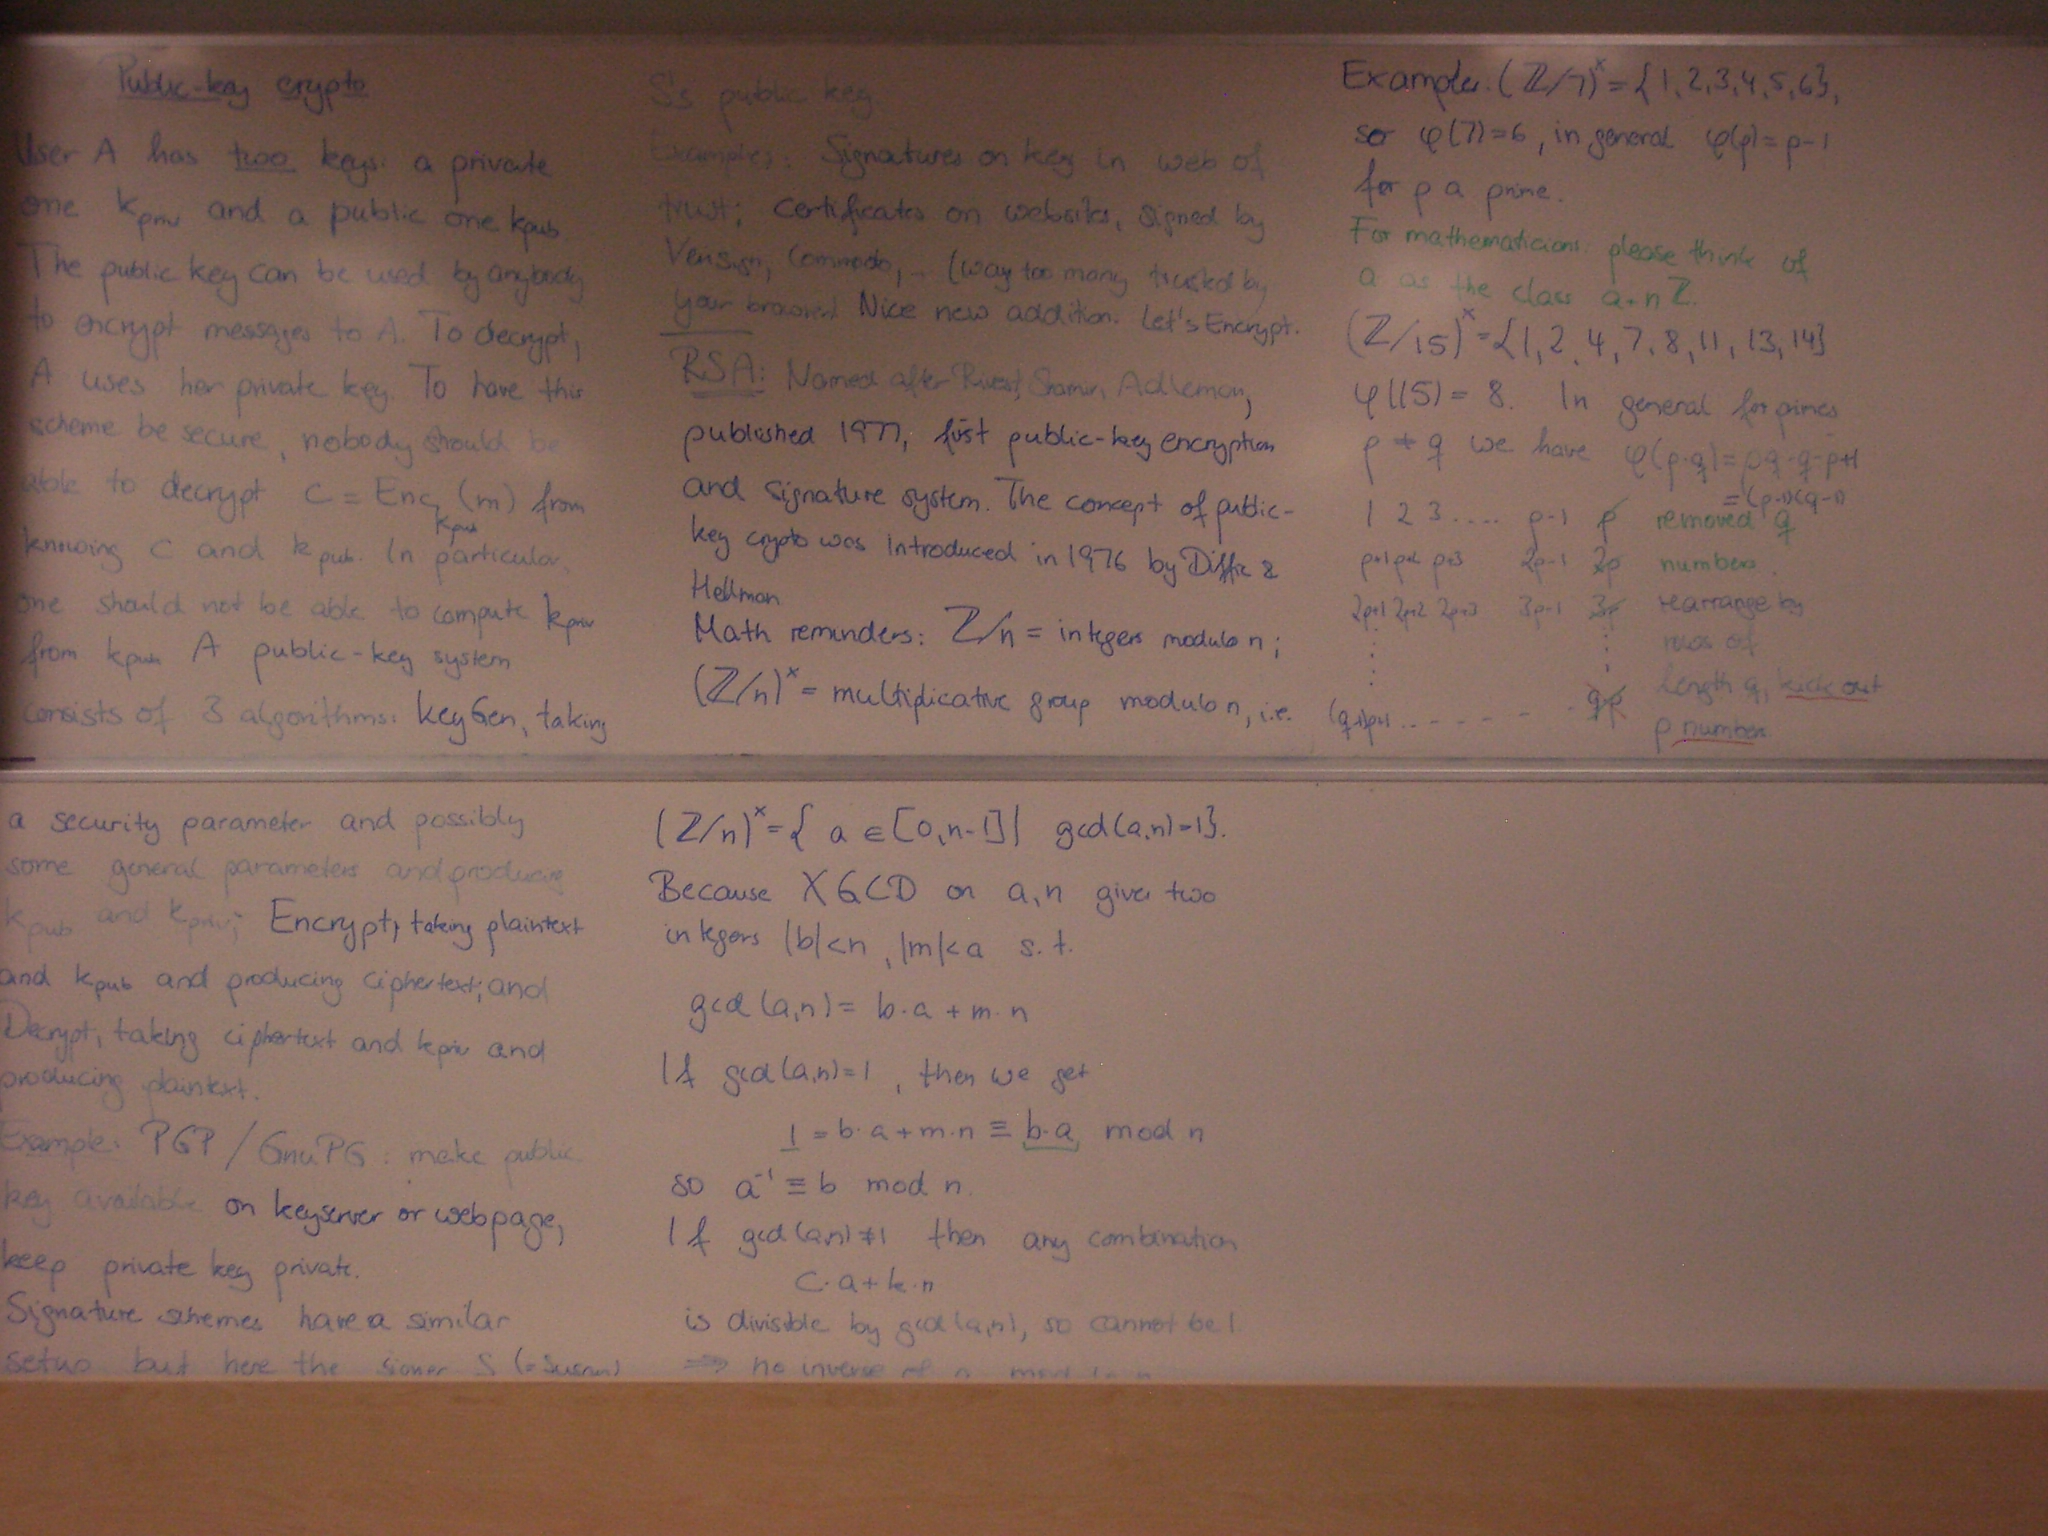 Public-key crypto
User A has two keys: a private
one k_priv and a public one k_pub.
The public key can be used by anybody
to encrypt messages to A. To decrypt,
A uses her private key. To have this
scheme be secure, nobody should be
able to decrypt c = Enc_k_pub (m) from
knowing c and k_pub. In particular,
one should not be able to compute k_priv
from k_pub. A public-key system
consists of 3 algorithms: keyGen, taking
a security parameter and possibly
some general parameters and producing
k_pub and k_priv; Encrypt, taking plaintext
and k_pub and producing ciphertext; and
Decrypt, taking ciphertext and k_priv and
producing plaintext.
Example: PGP / GnuPG: make public
key available on keyserver or webpage,
keep private key private.
Signature schemes have a similar
setup but here the signer S (=Susan)
S's public key
Examples: Signatures on key in web of
trust; certificates on websites, signed by
Verisign, Commodo, … (way too many trusted by
your browser) Nice new addition: Let's Encrypt.
RSA: Named after Rivest, Shamir, Adleman,
published 1977, first public-key encryption
and signature system. The concept of public-
key crypto was introduced in 1976 by Diffie &
Hellman
Math reminders: ℤ/n = integers modulo n;
(ℤ/n)^× = multiplicative group modulo n, i.e.
(ℤ/n)^× = { a ∈ [0,n-1] | gcd(a,n)=1}.
Because XGCD on a,n gives two
integers |b|<n, |m|<a s.t.
gcd(a,n) = b·a + m·n
If gcd(a,n)=1, then we get
1 = b·a + m·n ≡ b·a mod n
so a^-1 ≡ b mod n.
If gcd(a,n) ≠ 1 then any combination
c·a + k·n
is divisible by gcd(a,n), so cannot be 1.
⇒ no inverse of a modulo n
Example: (ℤ/7)^× = {1,2,3,4,5,6},
so φ(7)=6, in general φ(p)=p-1
for p a prime.
For mathematicians: please think of
a as the class a+nℤ.
(ℤ/15)^× = {1,2,4,7,8,11,13,14}
φ(15) = 8. In general for primes
p ≠ q we have φ(p·q) = pq-q-p+1
= (p-1)(q-1)
1 2 3 .... p-1 p removed q
p+1 p+2 p+3 2p-1 2p numbers.
2p+1 2p+2 2p+3 3p-1 3p rearrange by
rows of
length q, kick out
(q-1)p+1 ... qp
p numbers